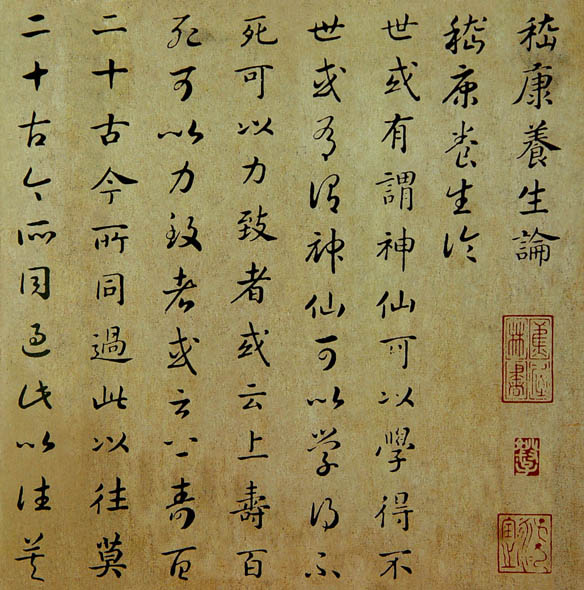 嵇康養生論
嵇康養生論
世或有謂神仙可以學得不
世或有謂神仙可以學得不
死可以力致者或云上壽百
死可以力致者或云上壽百
二十古今所同過此以往莫
二十古今所同過此以往莫